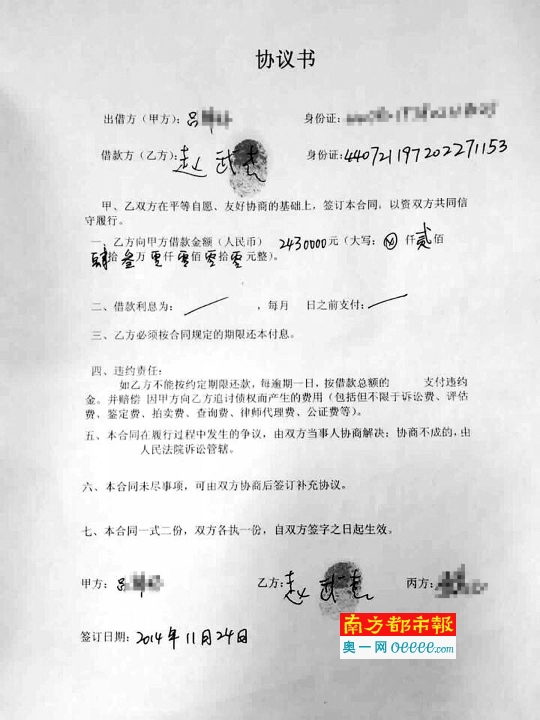 协议书
出借方（甲方）：吕
身份证：
借款方（乙方）：赵武志
身份证：440721197202271153
甲、乙双方在平等自愿、友好协商的基础上，签订本合同，以资双方共同信
守履行。
一、乙方向甲方借款金额（人民币）2430000元（大写：仟贰佰
肆拾叁万零仟零佰零拾零元整）。
二、借款利息为：，每月 日之前支付：
三、乙方必须按合同规定的期限还本付息。
四、违约责任：
如乙方不能按约定期限还款，每逾期一日，按借款总额的 支付违约
金。并赔偿 因甲方向乙方追讨债权而产生的费用（包括但不限于诉讼费、评估
费、鉴定费、拍卖费、查询费、律师代理费、公证费等）。
五、本合同在履行过程中发生的争议，由双方当事人协商解决；协商不成的，由
人民法院诉讼管辖。
六、本合同未尽事项，可由双方协商后签订补充协议。
七、本合同一式二份，双方各执一份，自双方签字之日起生效。
甲方：吕
乙方：赵武志
丙方：
签订日期：2014年11月24日
南方都市報
奥一网oeeee.com